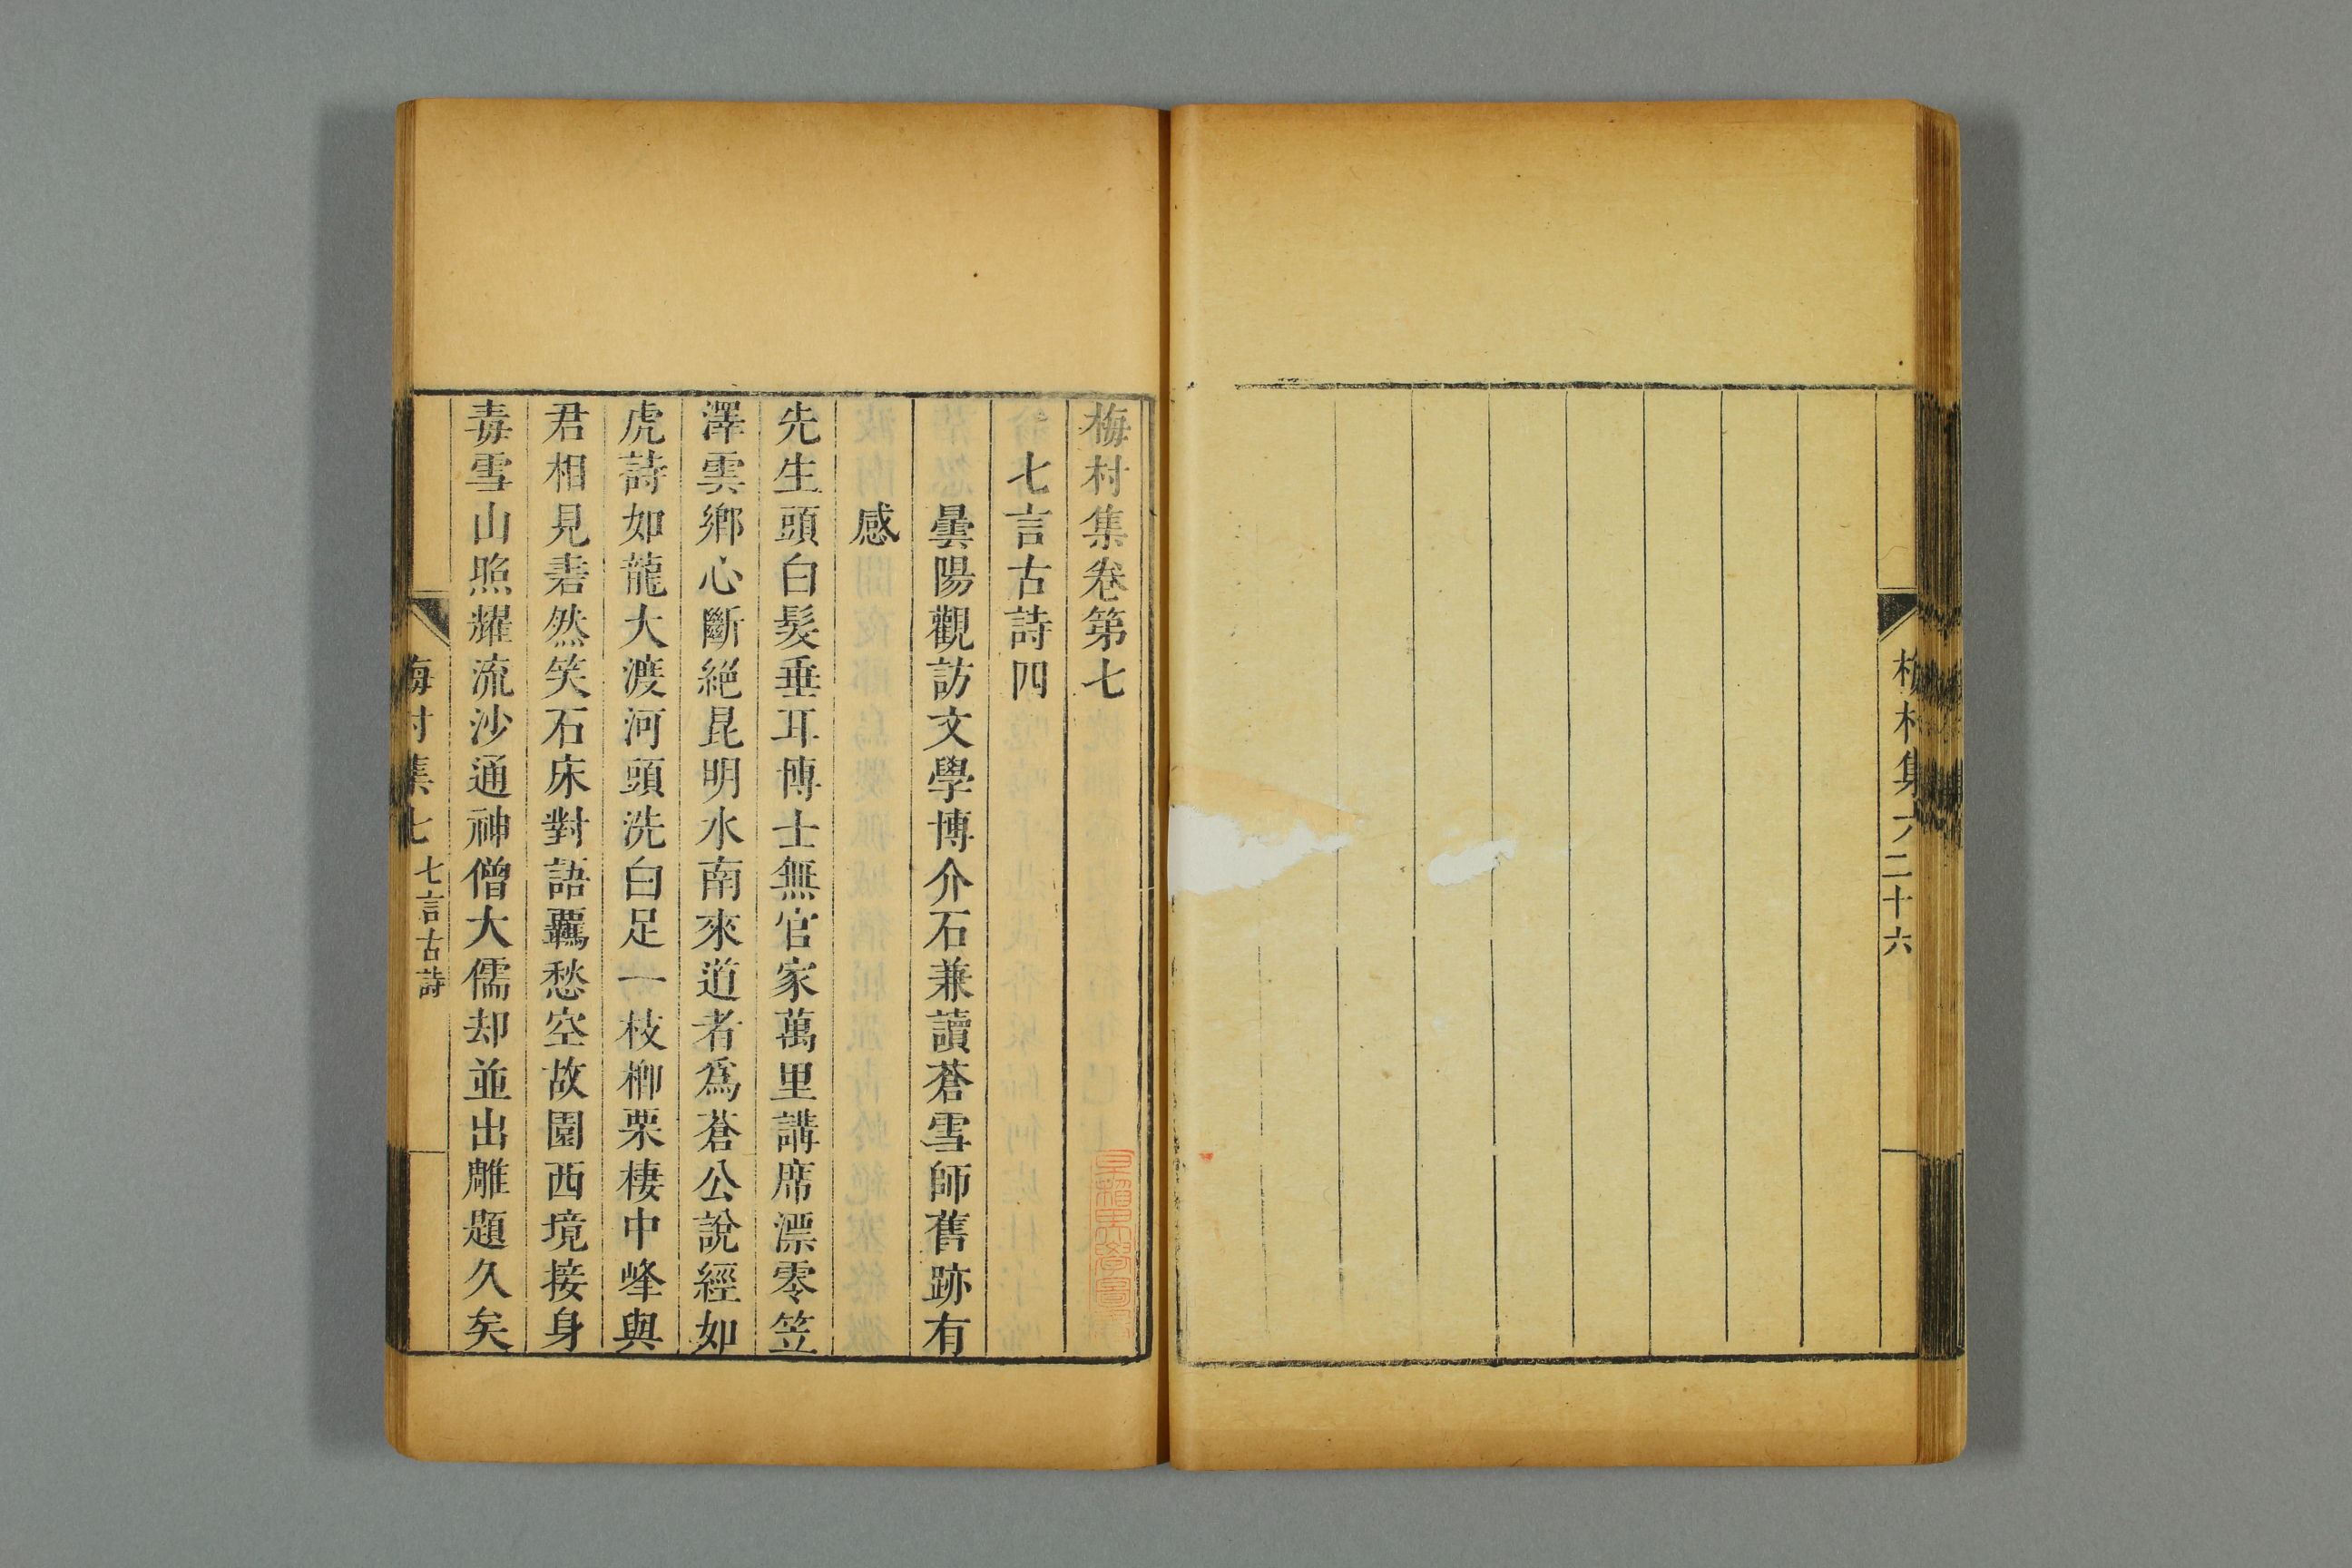 村集
二十六
梅村集卷第七
七言古詩四
曇陽觀訪文學博介石兼讀蒼雪師舊跡有
感
先生頭白髮垂耳博士無官家萬里講席漂零笠
澤雲鄉心斷絕昆明水南來道者爲蒼公說經如
虎詩如龍大渡河頭洗白足一枝櫛栗棲中峰與
君相見砉然笑石床對語羈愁空故園西境接身
毒雪山照耀流沙通神僧大儒却並出雕題久矣
梅村集七
七言古詩